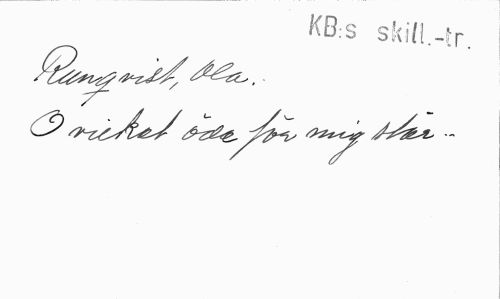 KB:s skill.-tr.
Runqvist, Ola.
O vilket öde för mig står..